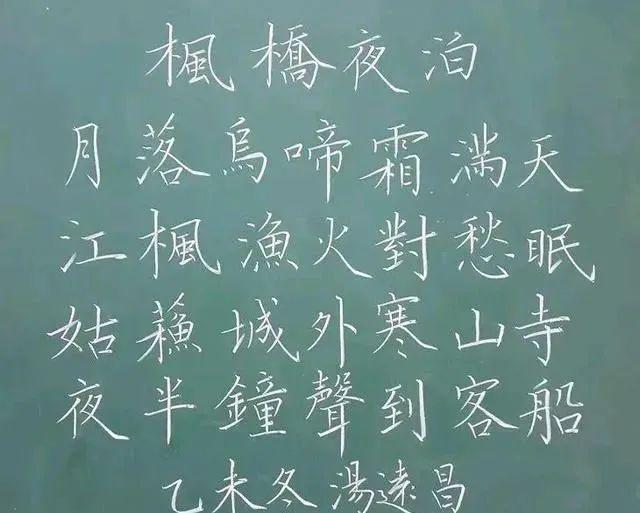 楓橋夜泊
月落烏啼霜滿天
江楓漁火對愁眠
姑蘇城外寒山寺
夜半鐘聲到客船
乙未冬湯遠昌